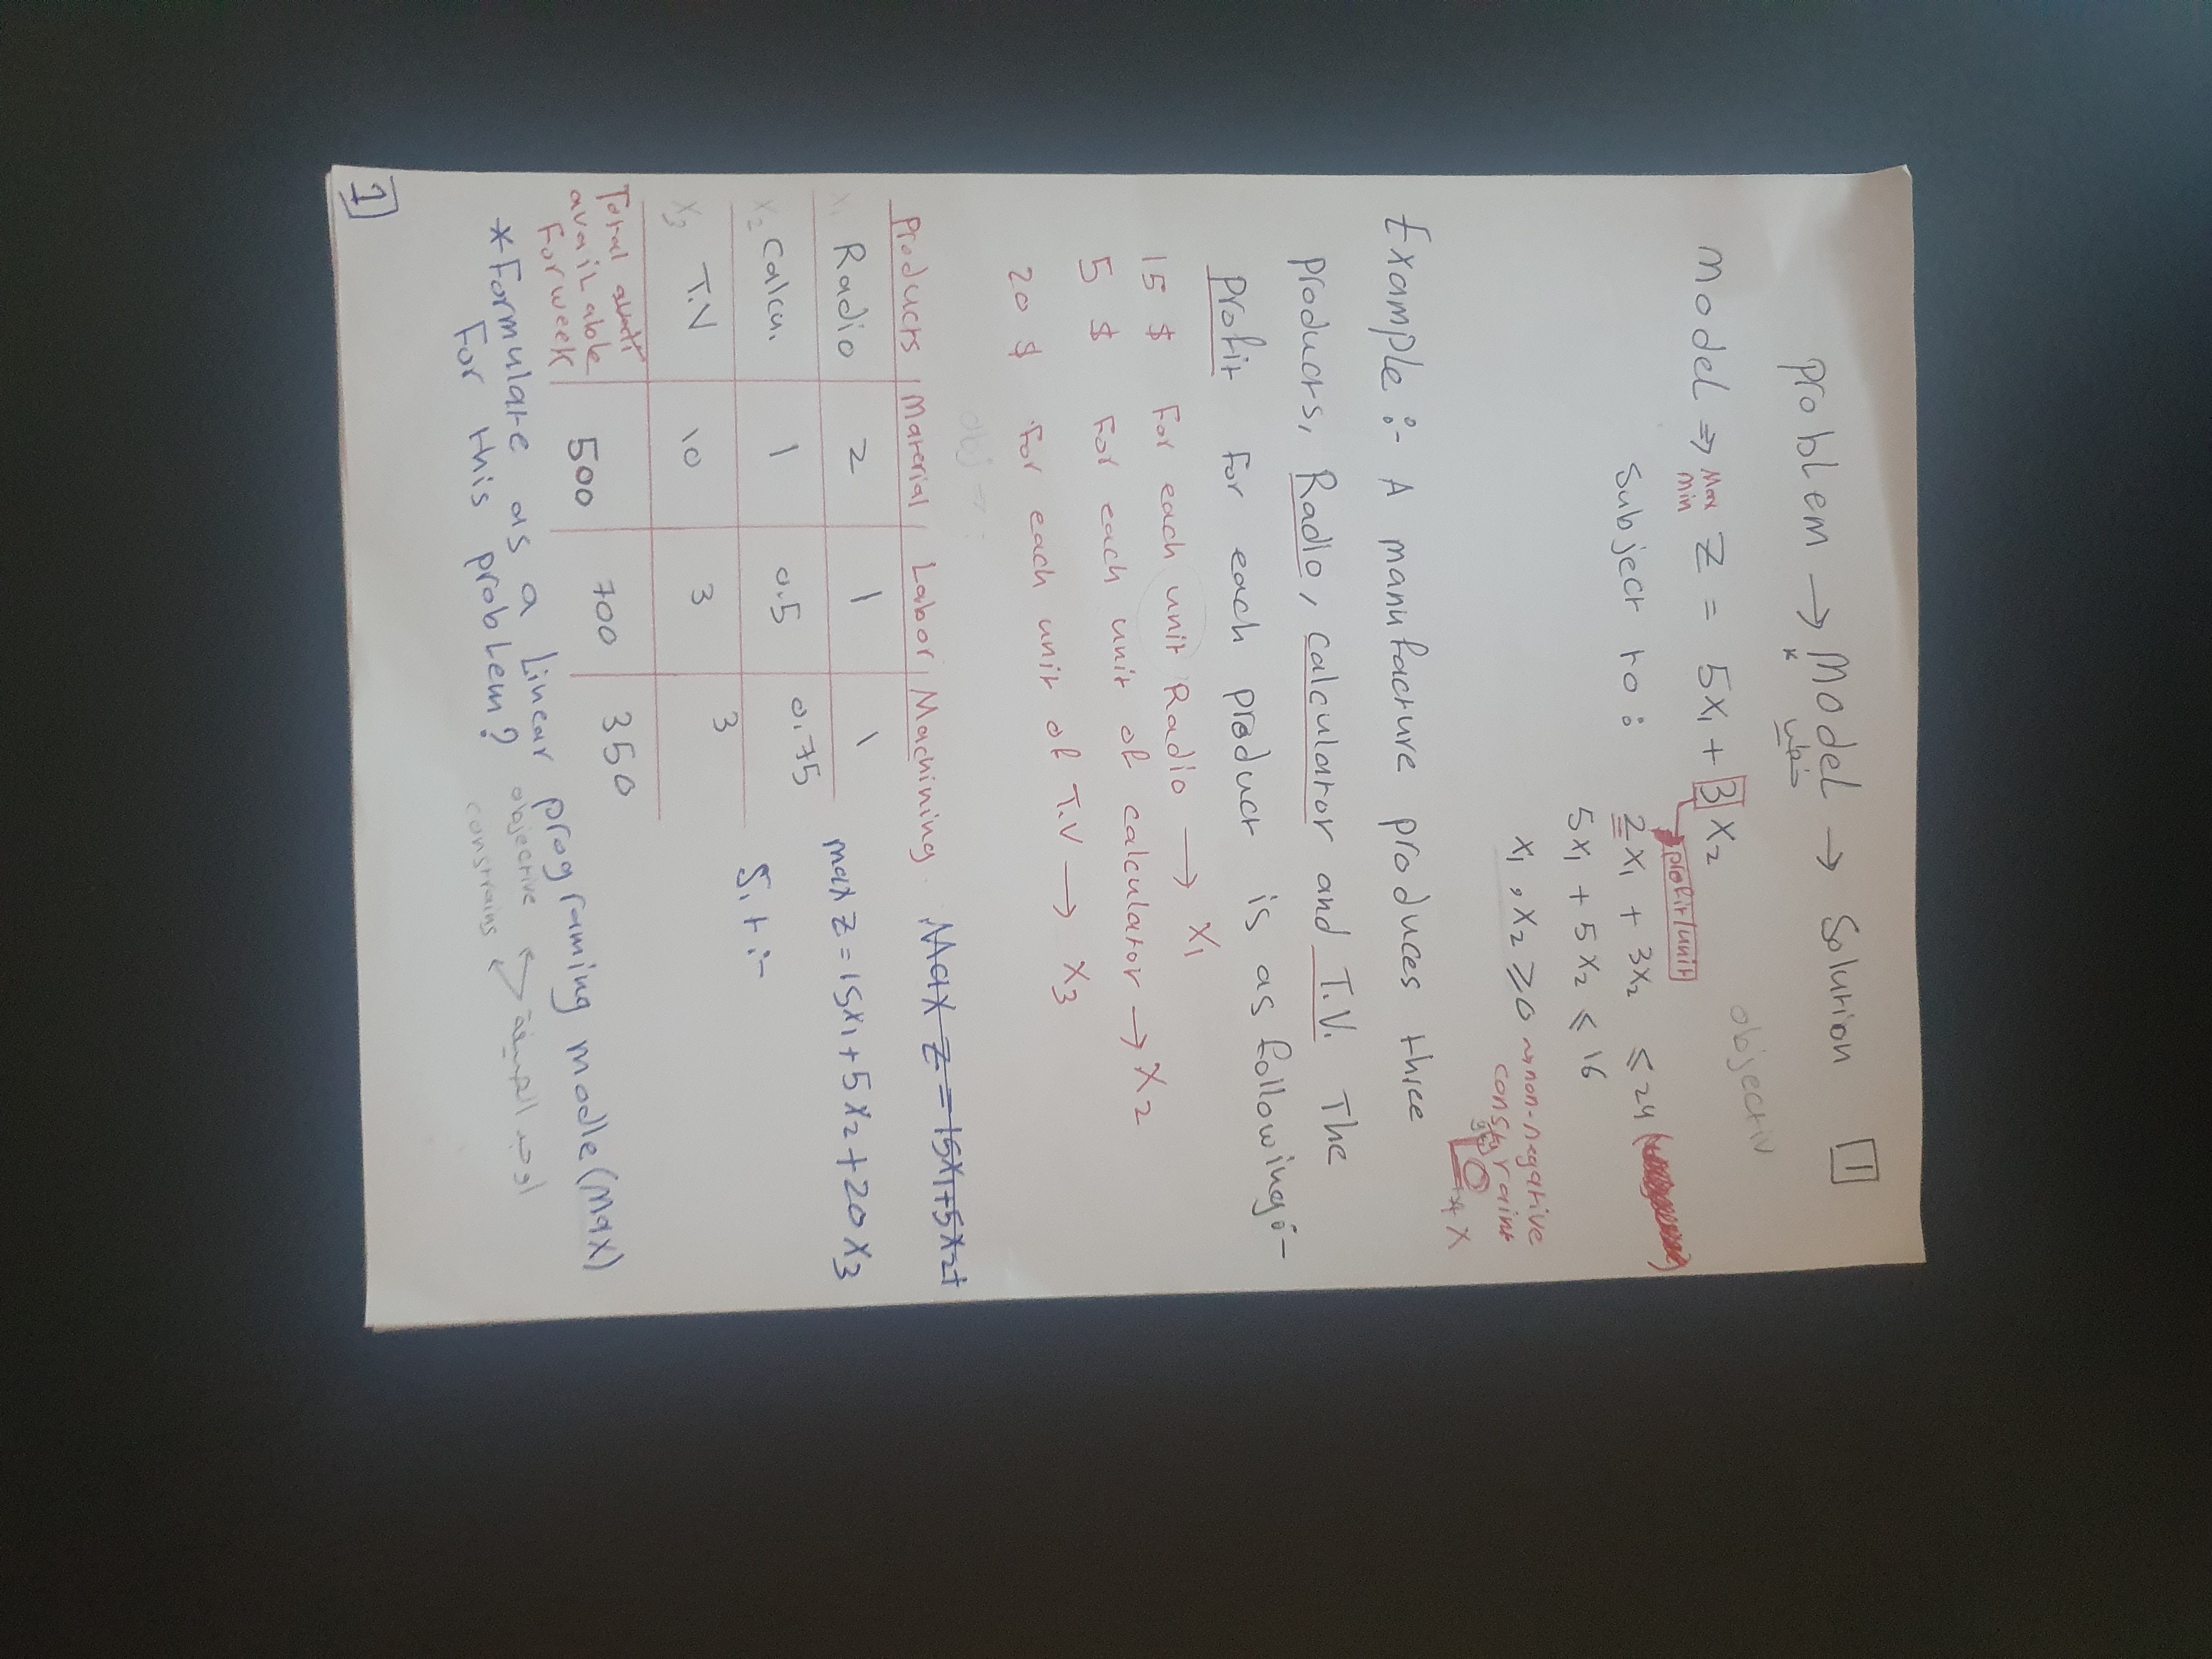 problem → Model → Solution 1
* خطي
objectiv
Model ⇒ Max min Z = 5x₁ + 3 x₂
profit/unit
Subject to : 2x₁ + 3x₂ ≤ 24
5x₁ + 5x₂ ≤ 16
x₁ , x₂ ≥ 0 → non-negative
constraint
x
Example :- A manufacture produces three
products, Radio, calculator and T.V. The
profit for each product is as following:-
15 $ For each unit Radio → x₁
5 $ For each unit of calculator → x₂
20 $ For each unit of T.V → x₃
obj → :
Products Material Labor Machining Max z = 15x₁+5x₂+
x₁ Radio 2 1 1 max z = 15x₁ + 5x₂ + 20x₃
x₂ Calcu. 1 0.5 0.75 S.t :-
x₃ T.V 10 3 3
Total avati
available
For week 500 700 350
* Formulate as a Linear programing modle (Max)
For this problem? objective اوجد الصيغة
constrains
1